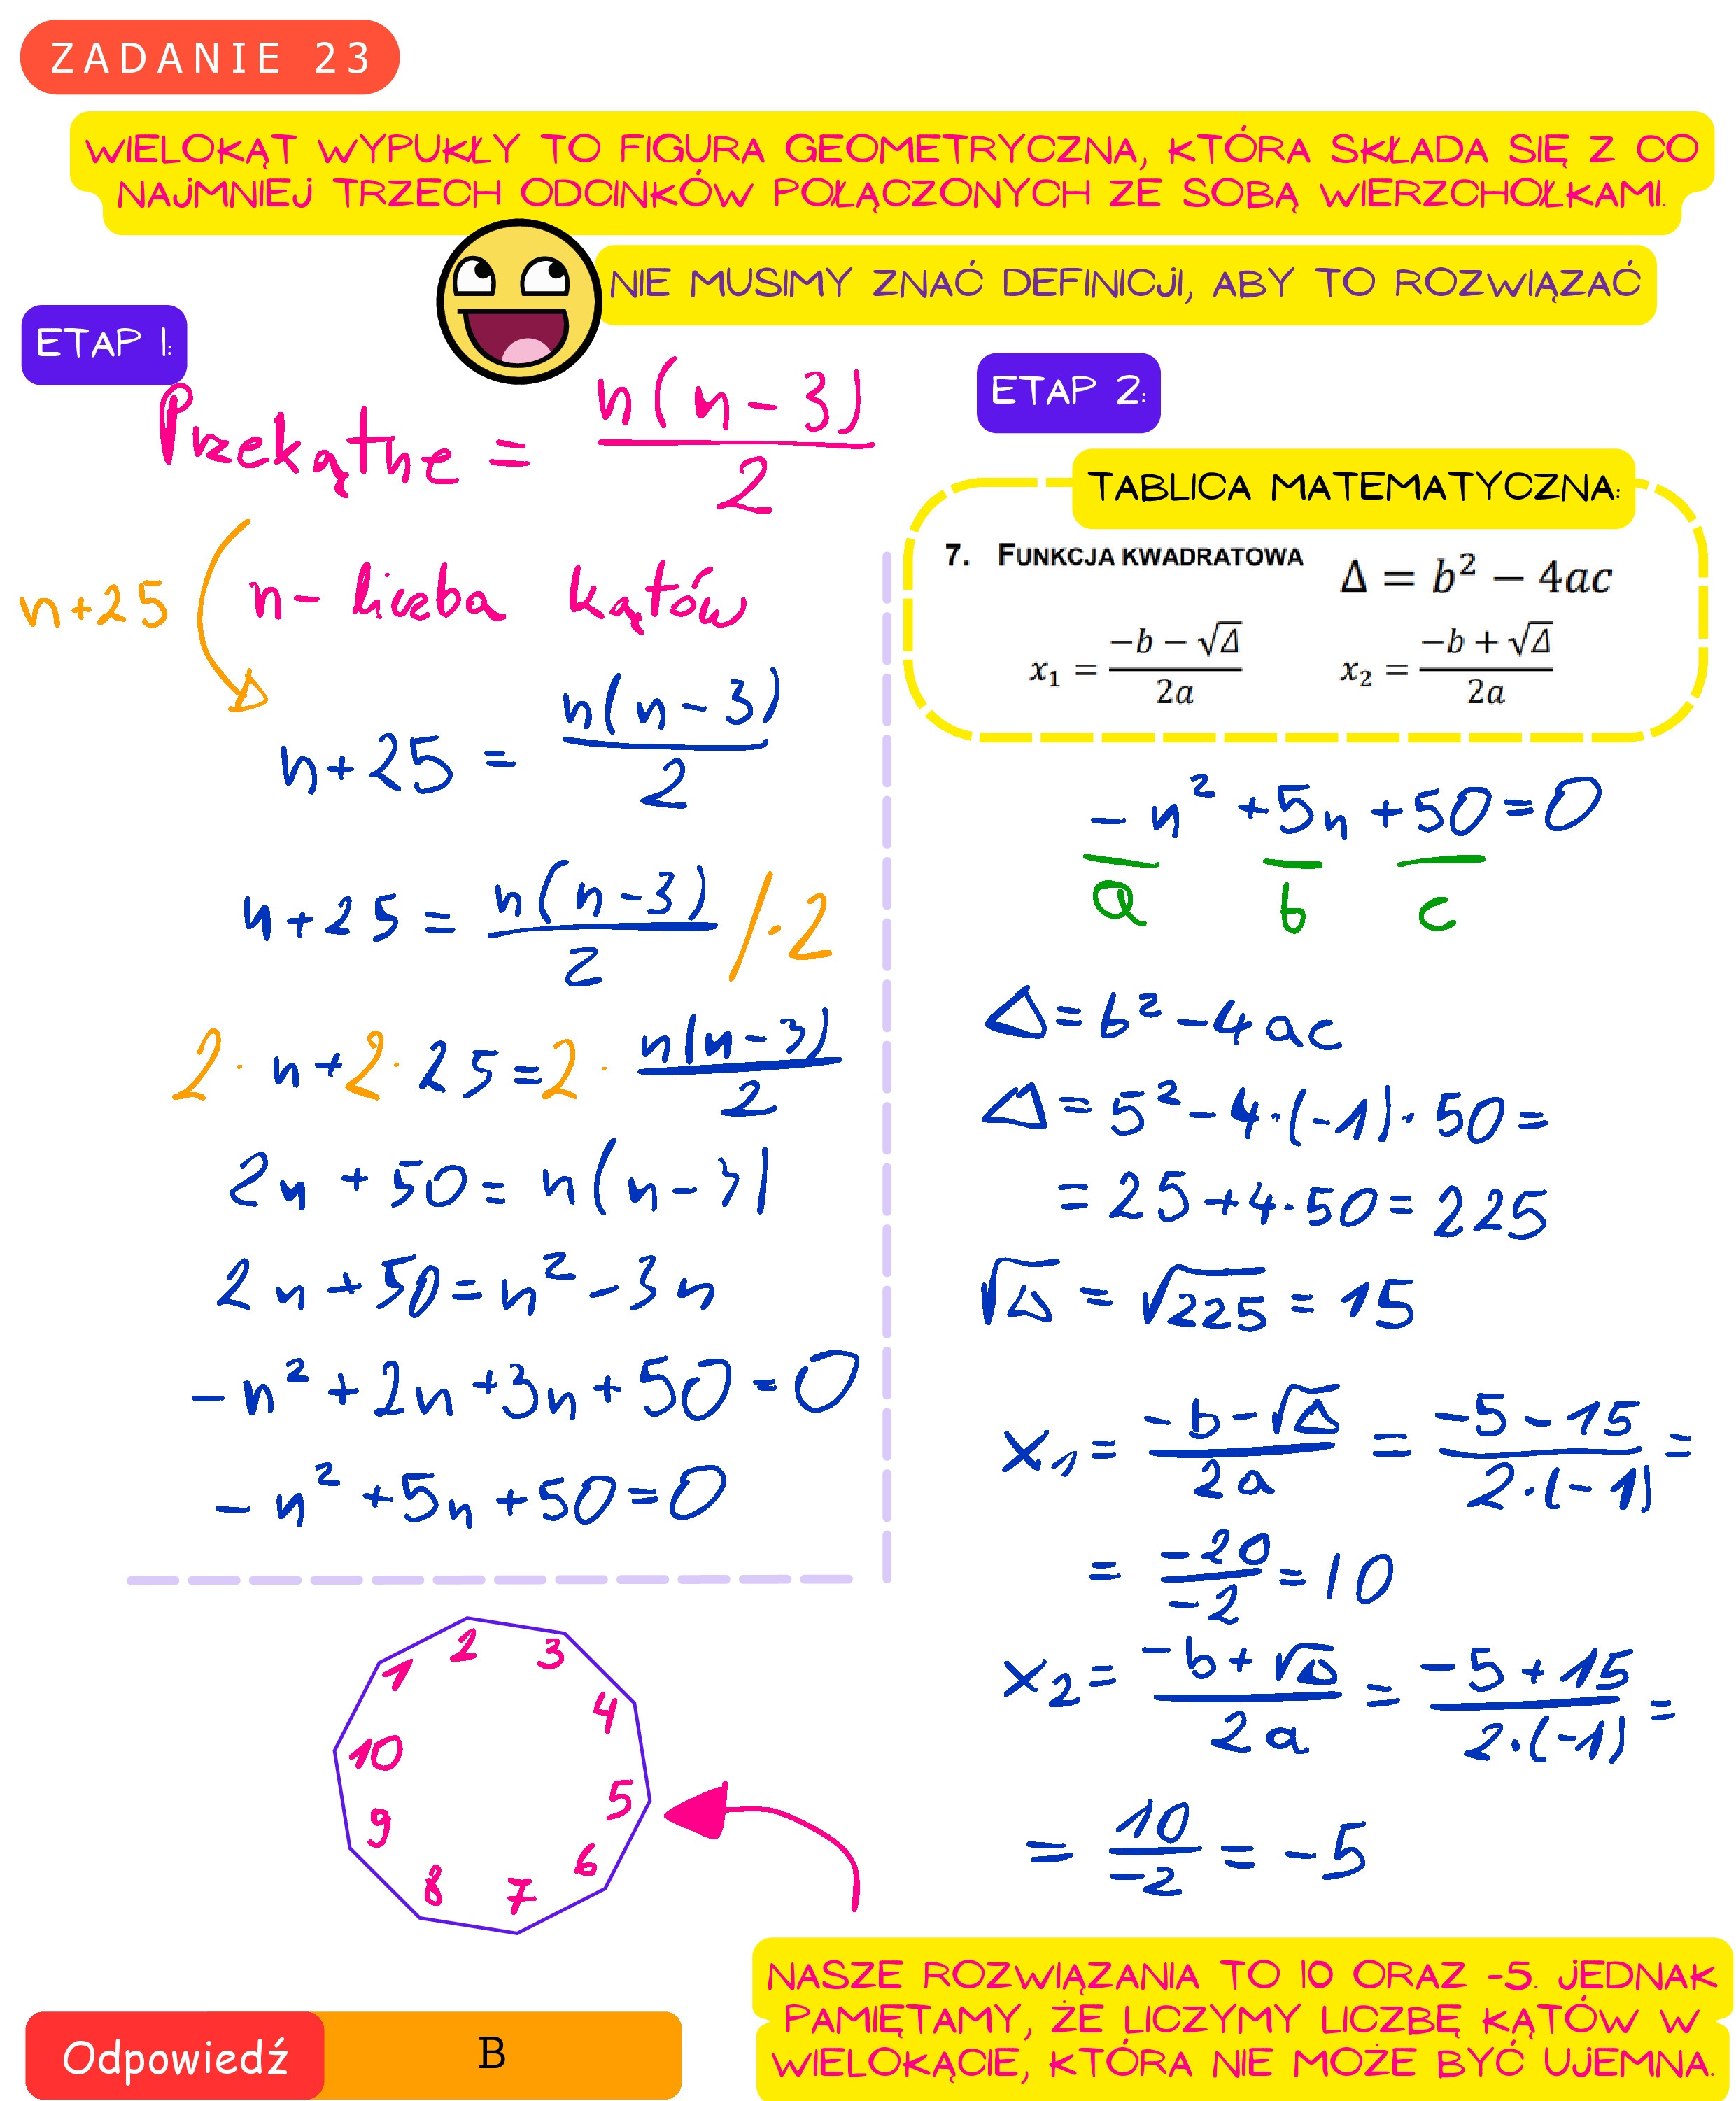 ZADANIE 23
WIELOKĄT WYPUKŁY TO FIGURA GEOMETRYCZNA, KTÓRA SKŁADA SIĘ Z CO
NAJMNIEJ TRZECH ODCINKÓW POŁĄCZONYCH ZE SOBĄ WIERZCHOŁKAMI.
NIE MUSIMY ZNAĆ DEFINICJI, ABY TO ROZWIĄZAĆ
ETAP 1:
Przekątne = \frac{n(n-3)}{2}
n+25
n - liczba kątów
n+25 = \frac{n(n-3)}{2}
n+25 = \frac{n(n-3)}{2} /·2
2· n+2· 25=2· \frac{n(n-3)}{2}
2n + 50 = n(n-3)
2n+50=n²-3n
-n²+2n+3n+50=0
-n²+5n+50=0
1
2
3
4
5
6
7
8
9
10
ETAP 2:
TABLICA MATEMATYCZNA:
7. FUNKCJA KWADRATOWA
Δ = b² − 4ac
x₁ = \frac{-b - √Δ}{2a}
x₂ = \frac{-b + √Δ}{2a}
-n²+5n+50=0
a b c
Δ=b²-4ac
Δ=5²-4·(-1)·50=
=25+4·50=225
√Δ = √225 = 15
x₁= \frac{-b-√Δ}{2a} = \frac{-5-15}{2·(-1)} =
= \frac{-20}{-2} = 10
x₂= \frac{-b+√Δ}{2a} = \frac{-5+15}{2·(-1)} =
= \frac{10}{-2} = -5
NASZE ROZWIĄZANIA TO 10 ORAZ -5. JEDNAK
PAMIĘTAMY, ŻE LICZYMY LICZBĘ KĄTÓW W
WIELOKĄCIE, KTÓRA NIE MOŻE BYĆ UJEMNA.
Odpowiedź B